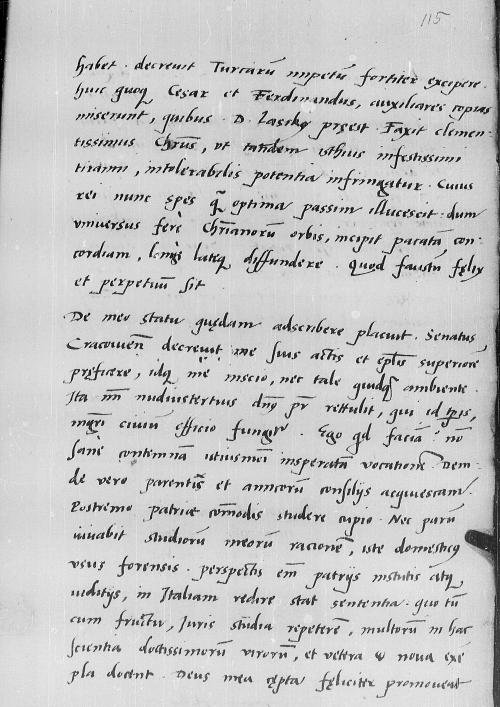 115
habet. decreuit Turcarū impetū fortiter excipere.
huic quoq Cesar et Ferdinandus, auxiliares copias
miserunt, quibus D. Lassky pręest. Faxit clemen-
tissimus Chrūs, vt tandem isthius infestissimi
tiranni, intolerabilis potentia infringatur. Cuius
rei nunc spes q̄ optima passim illucescit. dum
vniuersus ferè Chrīanorū orbis, incipit pacatā con-
cordiam, longè lateq diffundere. Quod faustū fęlix
et perpetuū sit
De meo statu quędam adscribere placuit. Senatus
Cracouień decreuit me suis actis et eplīs superiorē
pręficere, idq me inscio, nec tale quidq ambiente.
Ita m̄ nudiustertius dnś pr̄ rettulit, qui id tpis,
mgrī ciuiū officio fungitr. Ego qd faciā nō
sanè contemnā istiusmōi insperatā vocationē. Dein-
de vero parentis et amicorū consilijs acquiescam.
Postremo patriæ cōmodis studere cupio. Nec parū
iuuabit studiorū meorū rationē, iste domesticq
vsus forensis. perspectis em̄ patrijs institutis atq
iuditijs, in Italiam redire stat sententia. quo tū
cum fructu, Juris studia repeterē, multorū in hac
scientia doctissimorū virorū, et vetera et noua exē
pla docent. Deus mea cępta fęliciter promoueat